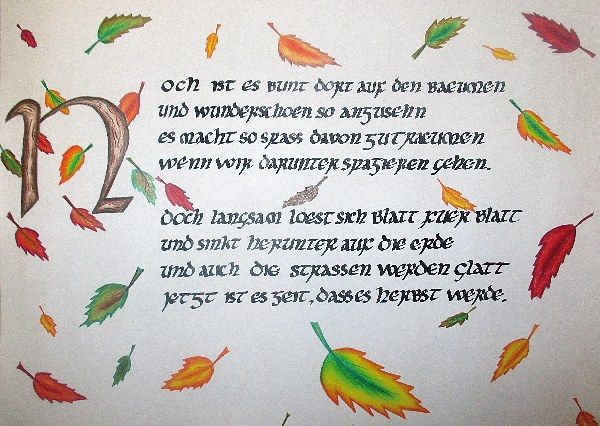 Noch ist es bunt dort auf den Baeumen
und wunderschoen so anzusehn
es macht so spass davon zu traeumen
wenn wir darunter spazieren gehen.
Doch langsam loest sich Blatt fuer Blatt
und sinkt herunter auf die Erde
und auch die Strassen werden glatt
jetzt ist es Zeit, dass es Herbst werde.